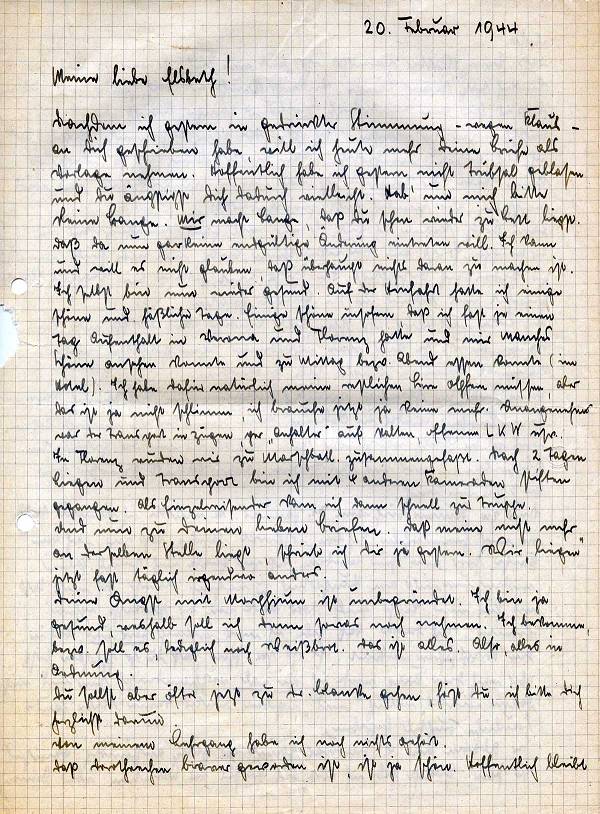 20. Februar 1944
Meine liebe Elsbeth!
Nachdem ich gestern in gedrückter Stimmung – wegen Klaus –
an Dich geschrieben habe, will ich heute mehr Deine Briefe als
Vorlage nehmen. Hoffentlich habe ich gestern nicht Trübsal geblasen
und Du ängstigst Dich dadurch vielleicht. Hab' um mich bitte
keine Bange. Mir macht Bange, daß Du schon wieder zu Bett liegst.
daß da nun gar keine endgültige Änderung eintreten will. Ich kann
und will es nicht glauben, daß überhaupt nichts daran zu machen ist.
Ich selbst bin nun wieder gesund. Auf der Herfahrt hatte ich einige
schöne und häßliche Tage. Einige schöne insofern daß ich fast je einen
Tag Aufenthalt in Verona und Florenz hatte und mir manches
schöne ansehen konnte und zu Mittag bezw. Abend essen konnte (im
Hotel). Ich habe dafür natürlich meine restlichen Lire opfern müssen, aber
das ist ja nicht schlimm, ich brauche jetzt ja keine mehr. Unangenehm
war der Transport in Zügen, per „Anhalter" auf kalten, offenen LKW usw.
In Florenz wurden wir zu Marschbatl. zusammengefaßt. Nach 2 Tagen
liegen und Transport bin ich mit 4 anderen Kameraden stiften
gegangen. Als Einzelreisender kam ich dann schnell zur Truppe.
Und nun zu Deinen lieben Briefen. Daß meine nicht mehr
an derselben Stelle liegt, schrieb ich Dir ja gestern. Wir „liegen"
jetzt fast täglich irgendwo anders.
Deine Angst mit Morphium ist unbegründet. Ich bin ja
gesund, weshalb soll ich denn sowas noch nehmen. Ich bekomme,
bezw. soll es, lediglich noch Weißbrot. Das ist alles. Also, alles in
Ordnung.
Du sollst aber öfter jetzt zu Dr. gehen, hörst Du, ich bitte Dich
herzlichst darum.
Von meinem Lehrgang habe ich noch nichts gehört.
Daß Dorotheechen braver geworden ist, ist ja schön. Hoffentlich bleibt